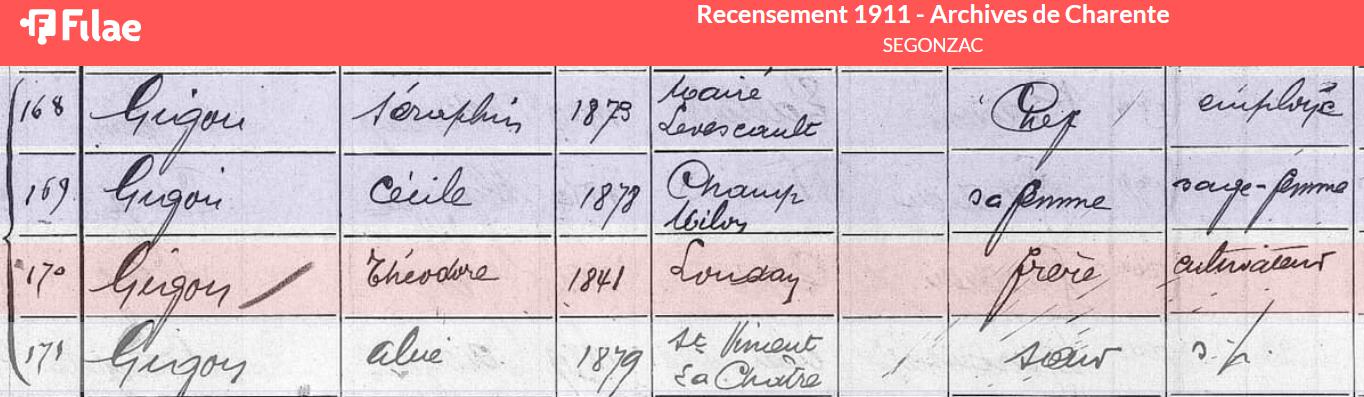 Filae
Recensement 1911 - Archives de Charente
SEGONZAC
168 Gigon Séraphin 1873 Mairé Levescault Chef employé
169 Gigon Cécile 1878 Champ Milon sa femme sage-femme
170 Gigon Théodore 1841 Louday frère cultivateur
171 Gigon 1879 St Vincent La Chatre soeur s.p.